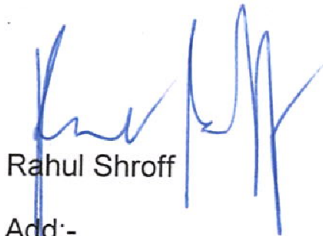 Rahul Shroff
Add:-